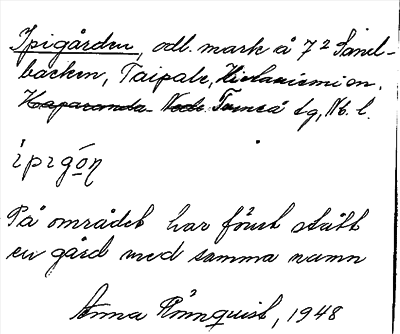 Ipigården, odl. mark å 7² Sand-
backen, Taipale, Hietaniemi sn.
Haparanda Nedr. Torneå tg, Nb. l.
ipigón
På området har förut stått
en gård med samma namn
Anna Rönnquist, 1948